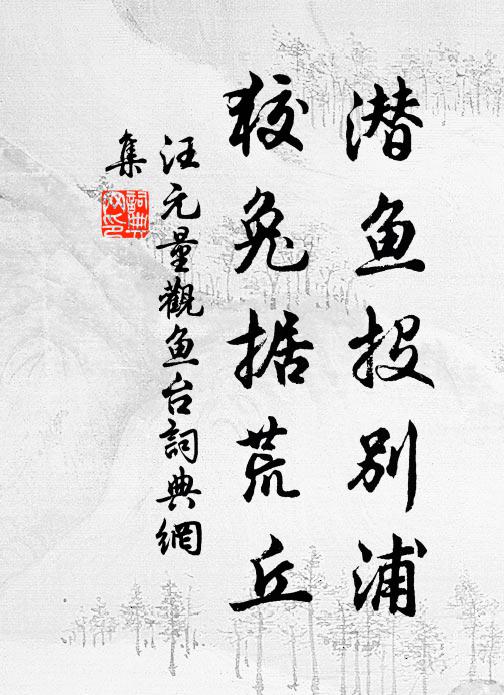 潜鱼投别浦
狡兔据荒丘
汪元量觀鱼台詞典網
集
詞典网印